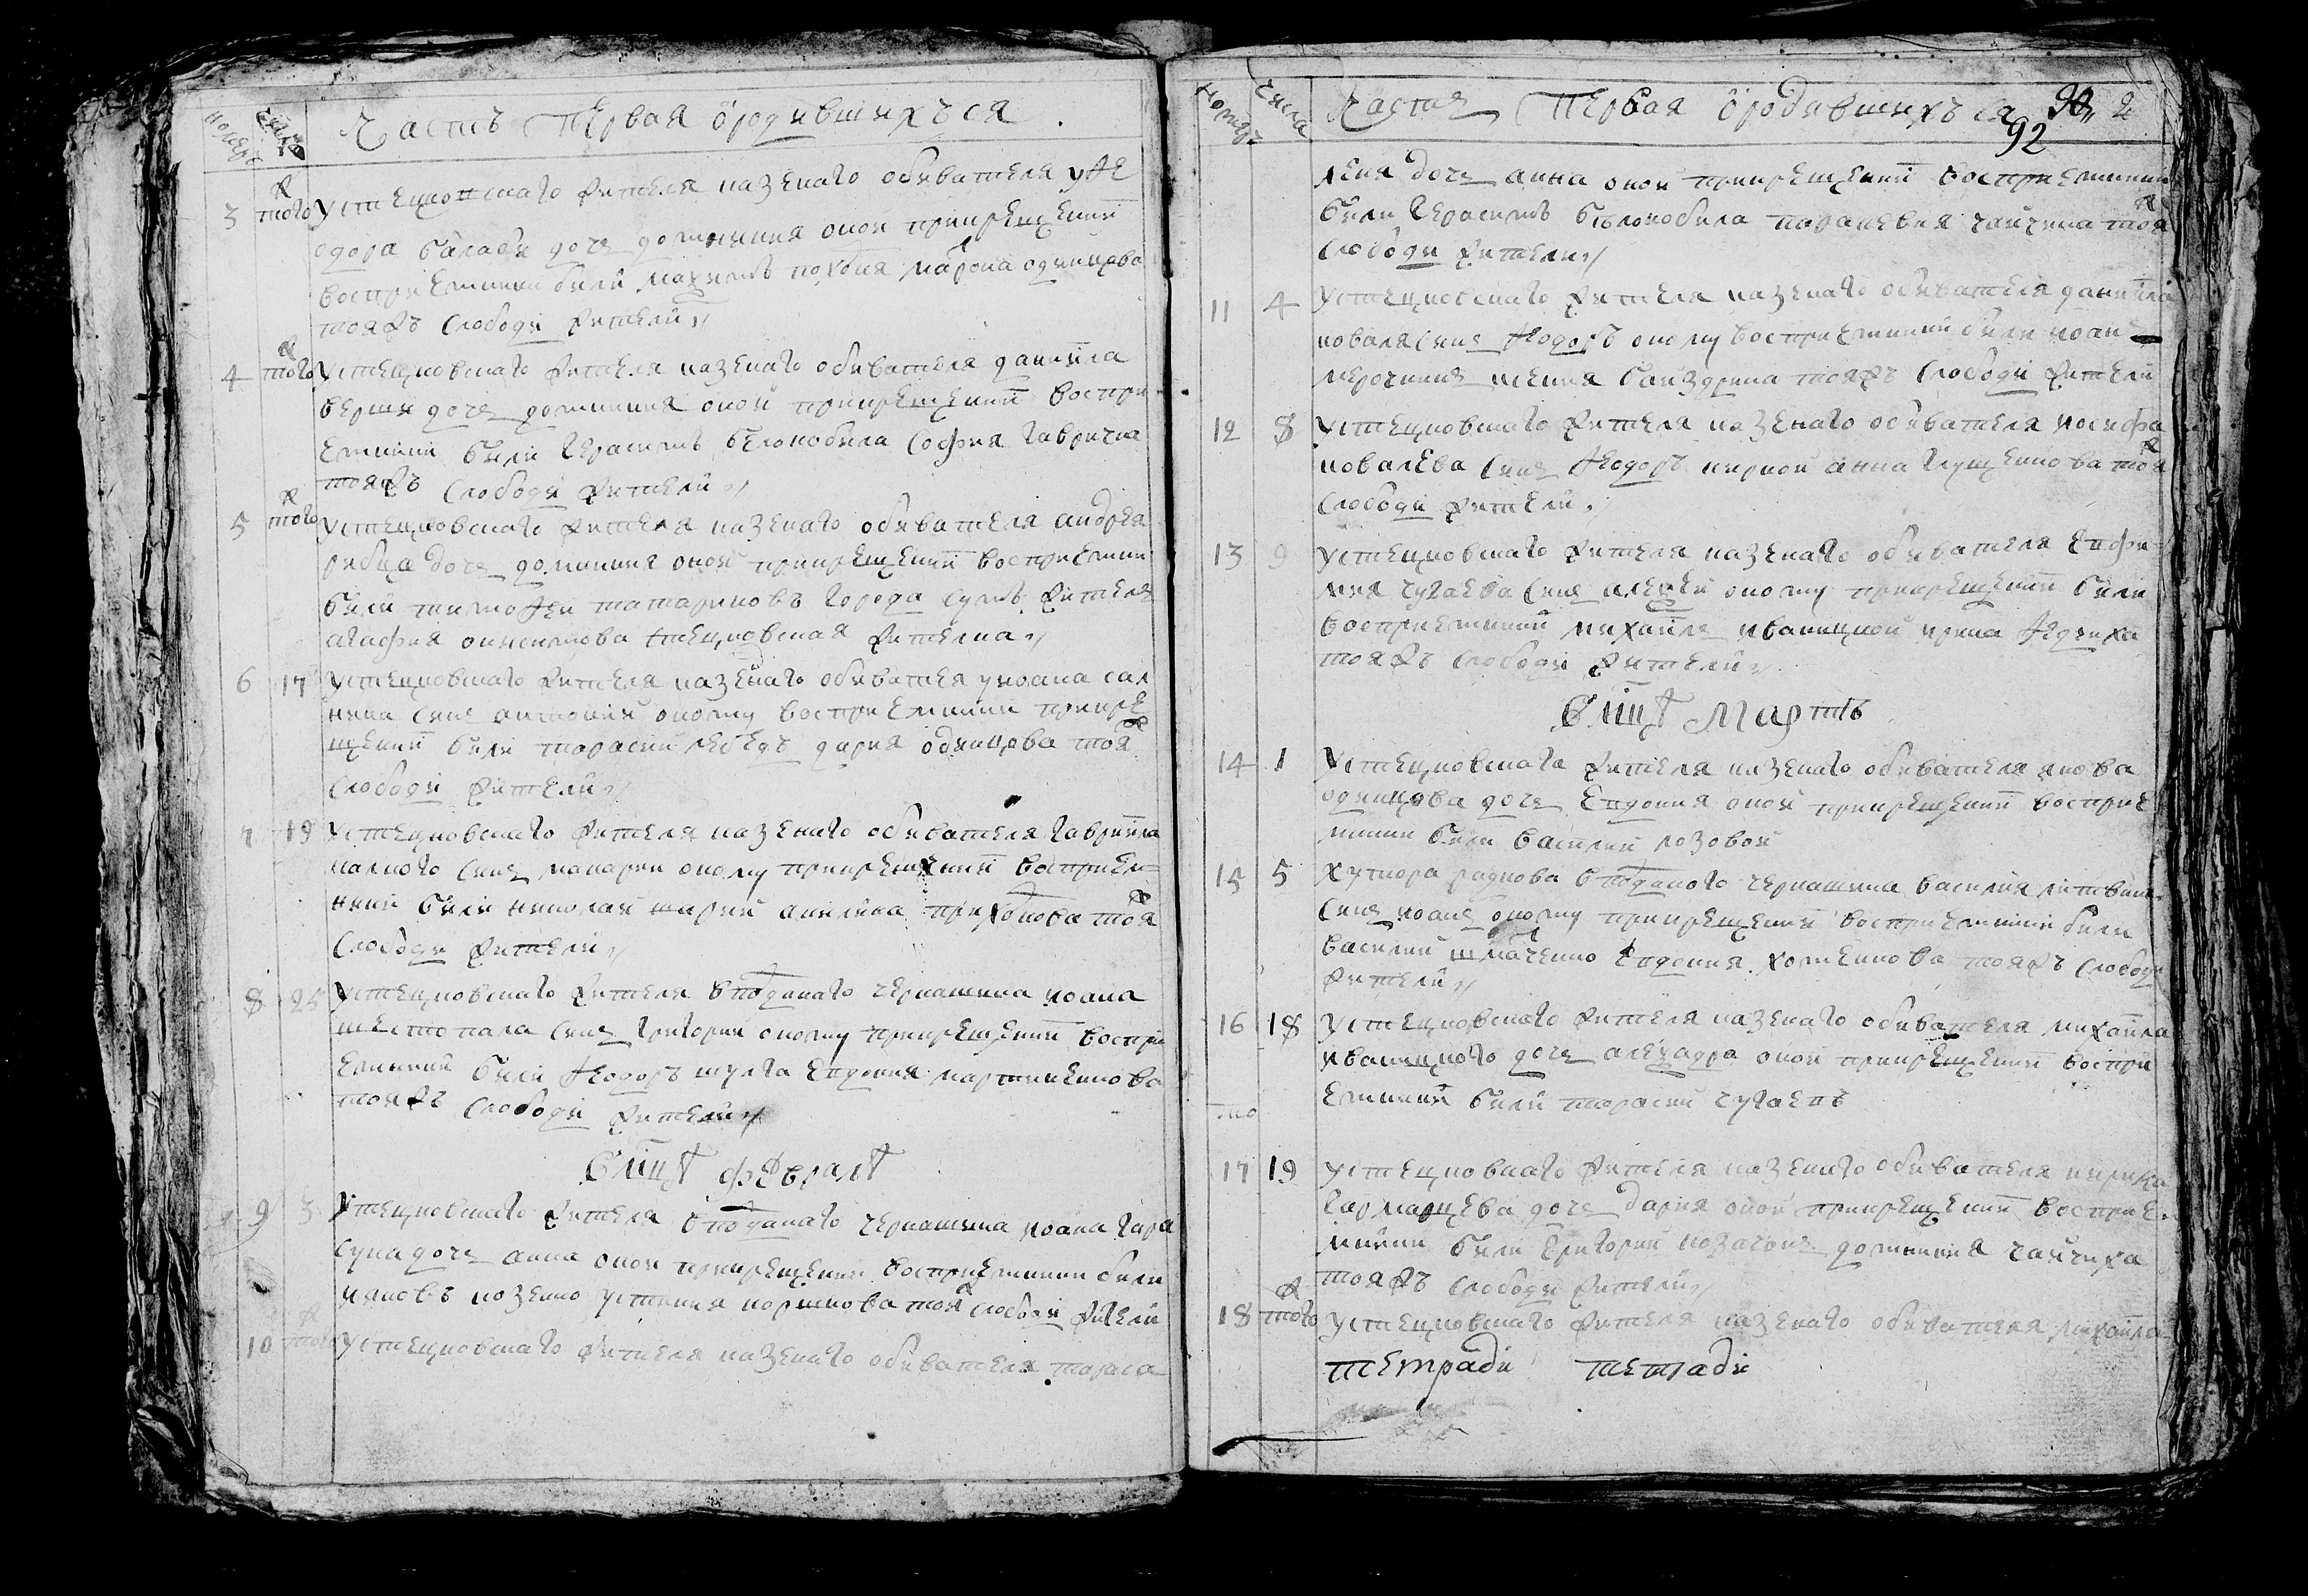 номеръ числа Часть Первая ѡродившихъся
3 тогож Устецковскаго жителя казенаго обивателя уѲе
одора балаби дочь домникия оной прикрещении
восприемники били макъсимъ похвия марфа одинцова
тояжъ слободи жители
4 тогож Устецковскаго жителя казенаго обивателя данийла
верши дочь домникия оной прикрещении воспри
емники били герасимъ белокобила софия гавричка
тояжъ слободи жители
5 тогож Устецковскаго жителя казенаго обивателя андрея
рибца дочь домникия оной прикрещении восприемники
били тимоѲеи татариновъ города сумъ житель
агафия онисимова стецковская жителка
6 17 Устецковскаго жителя казенаго обивателя уиоана сал
ника синъ антоний оному восприемники прикре
щении били тарасий лебедъ дария одинцова тояж
слободи жители
7 19 Устецковскаго жителя казенаго обивателя гаврийла
калного синъ макарий оному прикрещении восприем
ники били николай шарий акилина прихо́кова тояж
слободи жители
8 25 Устецковскаго жителя вподанаго черкашина иоана
шестопала синъ григорий оному прикрещении воспри
емники били Ѳеодоръ шулга евдокия мартиненкова
тояжъ слободи жители
въ мцѣ февралѣ
9 3 Устецковскаго жителя вподанаго черкашина иоана гара
суна дочь анна оной прикрещении восприемники били
яковъ козенко устиния коршкова тояж слободи жители
10 тогож Устецковскаго жителя казенаго обивателя тараса
номеръ числа Часть Первая ѡродившихъся 90 2
92
лепя дочь анна оной прикрещении восприемники
били герасимъ белокобила параскевия чайчина тояж
слободи жители
11 4 Устецковскаго жителя казенаго обивателя данийла
коваля синъ Ѳеодоръ оному восприемники били иоан
мерочникъ ксения баиздрина тояжъ слободи жители
12 8 Устецковскаго жителя казенаго обивателя иосифа
ковалева синъ Ѳеодоръ кирной анна глущенкова тояж
слободи жители
13 9 Устецковскаго жителя казенаго обивателя евфи
мия чугаева синъ алеѯѣй оному прикрещении били
восприемники михайлъ иваницкой ирина Ѳедчиха
тояжъ слободи жители
въ мцѣ Мартѣ
14 1 Устецковскаго жителя казенаго обивателя якова
одинцова дочь евдокия оной прикрещении восприе
мники били василий лозовой
15 5 Хутора радкова вподаного черкашина василия литвина
синъ иоанъ оному прикрещении восприемники били
василий шмаченко евдокия хоменкова тояжъ слободи
жители
16 18 Устецковскаго жителя казенаго обивателя михайла
иваницкого дочь алеѯадра оной прикрещении воспри
емники били тарасий чугаевъ
17 19 Устецковскаго жителя казенаго обивателя кирика
гармашева дочь дария оной прикрещении восприе
мники били григорий козачокъ домникия чайчиха
тояжъ слободи жители
18 тогож Устецковскаго жителя казенаго обивателя михайла
тетради тетради